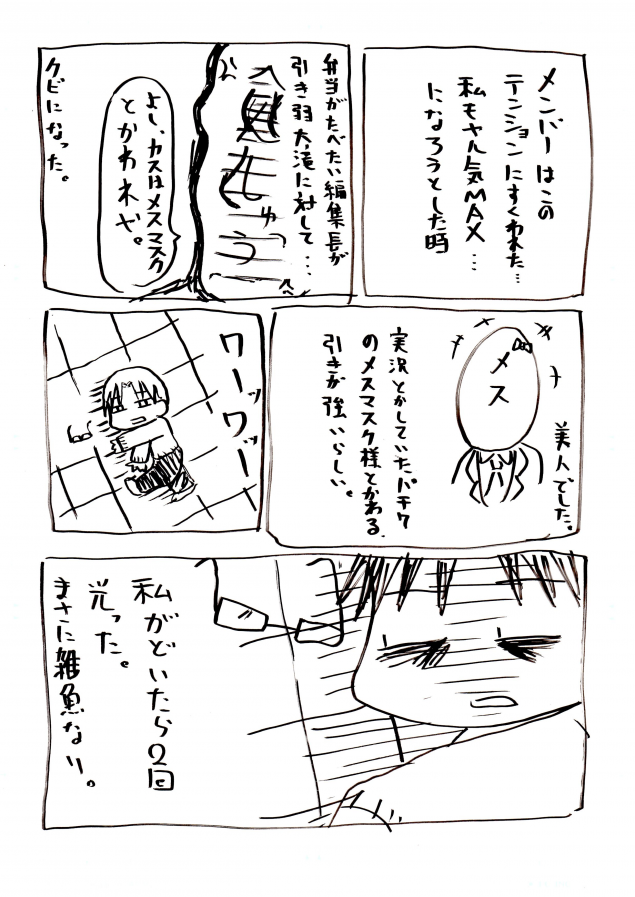 メンバーはこの
テンションにすくわれた…
私もヤル気MAX…
になろうとした時
弁当がたべたい編集長が
引き弱大滝に対して…
よし、カスはメスマスク
とかわれや。
クビになった。
メス
美人でした。
実況とかしていたパチ7
のメスマスク様とかわる。
引きが強いらしい。
ワーッワッー
私がどいたら2回
光った。
まさに雑魚なり。